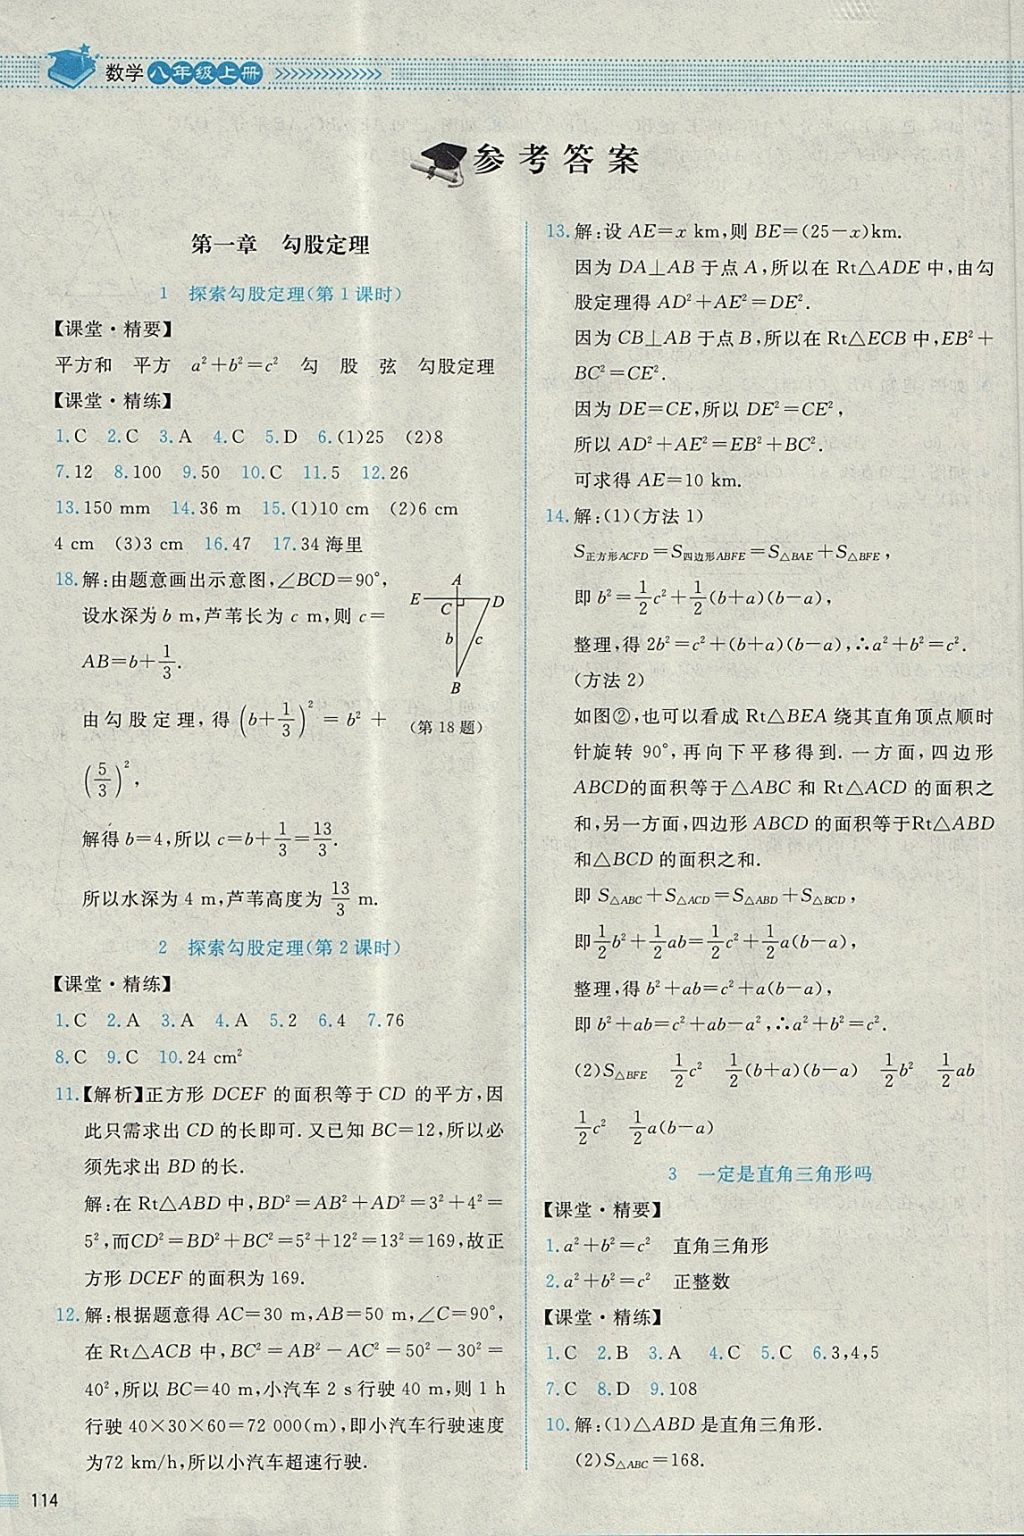 数学 八年级上册
参考答案
第一章 勾股定理
1 探索勾股定理(第1课时)
【课堂·精要】
平方和 平方 a²+b²=c² 勾 股 弦 勾股定理
【课堂·精练】
1.C 2.C 3.A 4.C 5.D 6.(1)25 (2)8
7.12 8.100 9.50 10.C 11.5 12.26
13.150 mm 14.36 m 15.(1)10 cm (2)6 cm
4 cm (3)3 cm 16.47 17.34海里
18.解:由题意画出示意图,∠BCD=90°,
设水深为b m,芦苇长为c m,则c=
AB=b+1/3.
由勾股定理,得(b+1/3)²=b²+
(5/3)²,
A
E C D
b c
B
(第18题)
解得b=4,所以c=b+1/3=13/3.
所以水深为4 m,芦苇高度为13/3 m.
2 探索勾股定理(第2课时)
【课堂·精练】
1.C 2.A 3.A 4.A 5.2 6.4 7.76
8.C 9.C 10.24 cm²
11.【解析】正方形DCEF的面积等于CD的平方,因
此只需求出CD的长即可.又已知BC=12,所以必
须先求出BD的长.
解:在Rt△ABD中,BD²=AB²+AD²=3²+4²=
5²,而CD²=BD²+BC²=5²+12²=13²=169,故正
方形DCEF的面积为169.
12.解:根据题意得AC=30 m,AB=50 m,∠C=90°,
在Rt△ACB中,BC²=AB²-AC²=50²-30²=
40²,所以BC=40 m,小汽车2 s行驶40 m,则1 h
行驶40×30×60=72 000(m),即小汽车行驶速度
为72 km/h,所以小汽车超速行驶.
13.解:设AE=x km,则BE=(25-x)km.
因为DA⊥AB于点A,所以在Rt△ADE中,由勾
股定理得AD²+AE²=DE².
因为CB⊥AB于点B,所以在Rt△ECB中,EB²+
BC²=CE².
因为DE=CE,所以DE²=CE²,
所以AD²+AE²=EB²+BC².
可求得AE=10 km.
14.解:(1)(方法1)
S正方形ACFD=S四边形ABFE=S△BAE+S△BFE,
即b²=1/2c²+1/2(b+a)(b-a),
整理,得2b²=c²+(b+a)(b-a),∴a²+b²=c².
(方法2)
如图②,也可以看成Rt△BEA绕其直角顶点顺时
针旋转90°,再向下平移得到.一方面,四边形
ABCD的面积等于△ABC和Rt△ACD的面积之
和,另一方面,四边形ABCD的面积等于Rt△ABD
和△BCD的面积之和.
即S△ABC+S△ACD=S△ABD+S△BCD,
即1/2b²+1/2ab=1/2c²+1/2a(b-a),
整理,得b²+ab=c²+a(b-a),
即b²+ab=c²+ab-a²,∴a²+b²=c².
(2)S△BFE 1/2c² 1/2(b+a)(b-a) 1/2b² 1/2ab
1/2c² 1/2a(b-a)
3 一定是直角三角形吗
【课堂·精要】
1.a²+b²=c² 直角三角形
2.a²+b²=c² 正整数
【课堂·精练】
1.C 2.B 3.A 4.C 5.C 6.3,4,5
7.C 8.D 9.108
10.解:(1)△ABD是直角三角形.
(2)S△ABC=168.
114